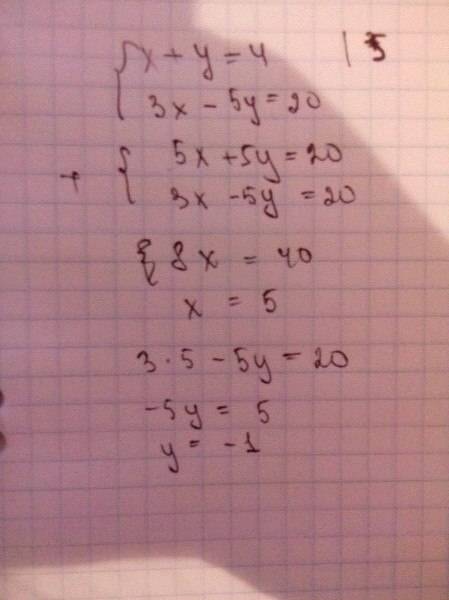 { x + y = 4 | 5
3x - 5y = 20
+ { 5x + 5y = 20
3x - 5y = 20
{ 8x = 40
x = 5
3 · 5 - 5y = 20
-5y = 5
y = -1